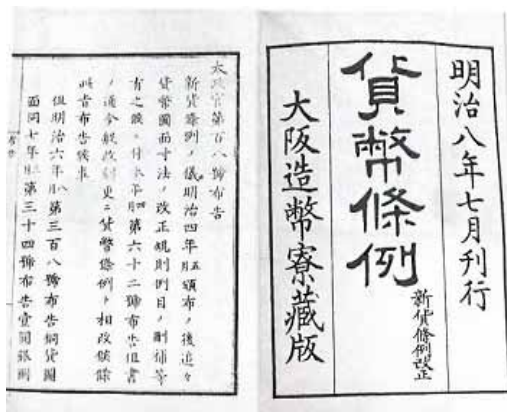 明治八年七月刊行
貨幣條例
新貨條例改正
大阪造幣寮藏版
太政官第百八號布告
新貨條例ノ儀明治四年五月頒布ノ後追々
貨幣圖面寸法ノ改正規則例目ノ刪補等
有之候ニ付本年四月第六十二號布告但書
ノ通今般改刻更ニ貨幣條例ト相改候條
此旨布告候事
但明治六年八月第三百八號布告銅貨圖
面同七年三月第三十四號布告壹圓銀